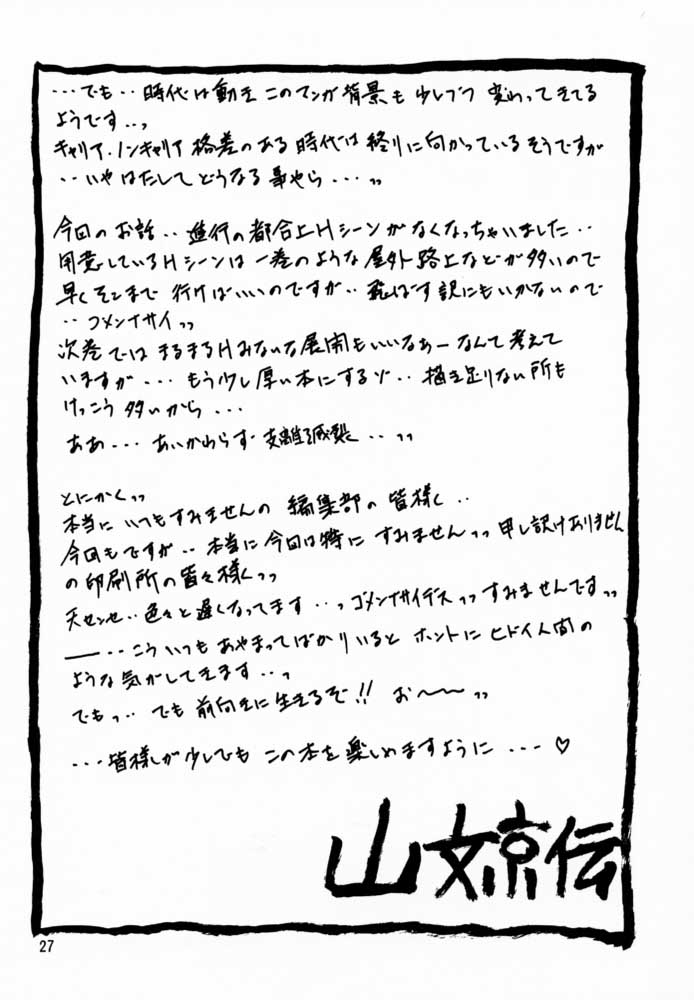 ・・・でも・・時代は動き このマンガ背景も少しづつ 変わってきてる
ようです・・っ
キャリア・ノンキャリア格差のある時代は終りに向かっているそうですが
・・いやはたしてどうなる事やら・・・っっ
今回のお話・・進行の都合上Hシーンがなくなっちゃいました・・
用意しているHシーンは一巻のような屋外路上などが多いので
早くそこまで行けばいいのですが・・飛ばす訳にもいかないので
・・ゴメンナサイっっ
次巻ではまるまるHみたいな展開もいいなぁーなんて考えて
いますが・・・もう少し厚い本にするゾ・・描き足りない所も
けっこう多いから・・・
ああ・・・あいかわらず支離滅裂・・っっ
とにかくっっ
本当にいつもすみませんの編集部の皆様く・・
今回もですが・・本当に今回は特にすみませんっっ申し訳けありません
の印刷所の皆々様くっっ
天センセ・・色々と遅くなってます・・っゴメンナサイデスっっすみませんですっっ
――・・こういつもあやまってばかりいるとホントにヒドイ人間の
ような気がしてきます・・っ
でもっ・・でも前向きに生きるぞ!! お〜〜っっ
・・・皆様が少しでもこの本を楽しめますように・・・♡
山文京伝
27